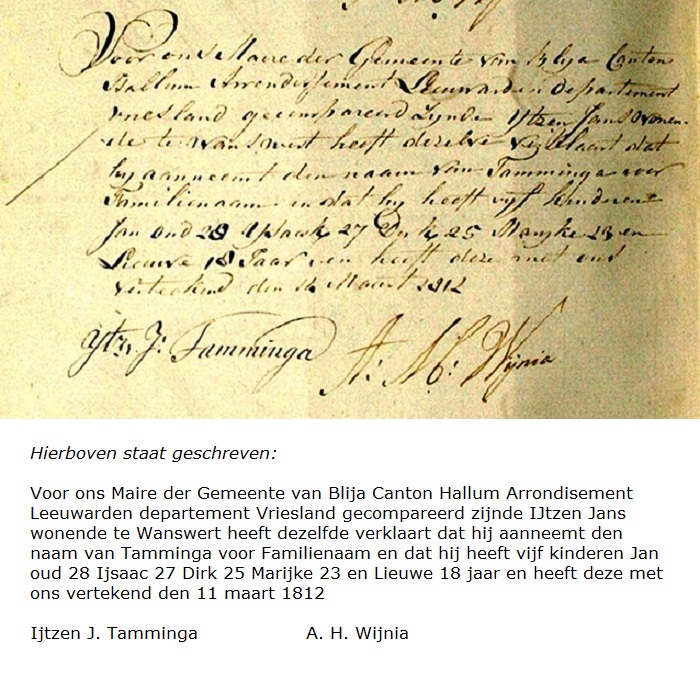 Voor ons Maire der Gemeente van Blija Canton
Hallum Arrondissement Leeuwarden departement
Vriesland gecompareerd zynde Ytzen Jans wonen-
de te Wanswert heeft dezelve verklaart dat
hy aanneemt den naam van Tamminga voor
Familienaam en dat hy heeft vyf kinderen
Jan oud 28 Ysaack 27 Dirk 25 Maryke 23 en
Lieuwe 18 Jaar en heeft deze met ons
vertekend den Maart 1812
Ytzn J: Tamminga
A: H: Wijnia
Hierboven staat geschreven:
Voor ons Maire der Gemeente van Blija Canton Hallum Arrondisement
Leeuwarden departement Vriesland gecompareerd zijnde IJtzen Jans
wonende te Wanswert heeft dezelfde verklaart dat hij aanneemt den
naam van Tamminga voor Familienaam en dat hij heeft vijf kinderen Jan
oud 28 Ijsaac 27 Dirk 25 Marijke 23 en Lieuwe 18 jaar en heeft deze met
ons vertekend den 11 maart 1812
Ijtzen J. Tamminga A. H. Wijnia